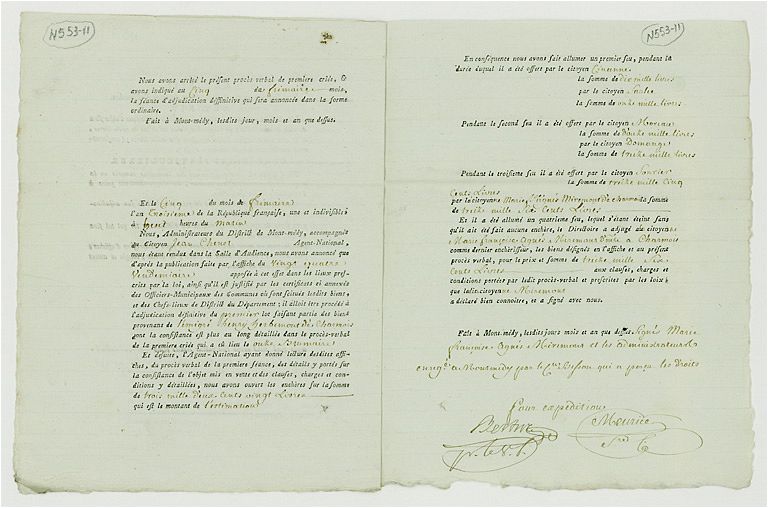 N553-11
Nous avons arrêté le présent procès verbal de premiere criée, &
avons indiqué au Cinq de frimaire mois,
la séance d'adjudication deffinitive qui sera annoncée dans la forme
ordinaire.
Fait à Mont-médy, lesdits jour, mois et an que dessus.
Et le Cinq du mois de frimaire
l'an troisieme de la République française, une et indivisible,
à heures du matin
Nous, Administrateurs du District de Mont-médy, accompagnés
du Citoyen Jean Agent-National,
nous étant rendus dans la Salle d'Audience, nous avons annoncé que
d'après la publication faite par l'affiche du Vingt quatre
Vendemiaire apposée à cet effet dans les lieux pres-
crits par la loi, ainsi qu'il est justifié par les certificats et annexés
des Officiers-Municipaux des Communes où sont situés lesdits biens,
et des Chefs-lieux de District du Département; il alloit être procédé à
l'adjudication définitive du premier lot faisant partie des biens
provenant de l'émigré Henry herbemont de Charmois
dont la consistance est plus au long détaillée dans le procès-verbal
de la premiere criée qui a eu lieu le onze Brumaire
Et desuite, l'Agent-National ayant donné lecture desdites affi-
ches, du procès verbal de la premiere séance, des détails y portés sur
la consistance de l'objet mis en vente et des clauses, charges et con-
ditions y détaillées, nous avons ouvert les enchères sur la somme
de trois mille deux Cents vingt Livres
qui est le montant de l'estimation
N553-11
En conséquence nous avons fait allumer un premier feu, pendant la
durée duquel il a été offert par le citoyen
la somme de dix mille livres
par le citoyen
la somme de onze mille livres
Pendant le second feu il a été offert par le citoyen Moreau
la somme de douze mille livres
par le citoyen Domange
la somme de treize mille livres
Pendant le troisieme feu il a été offert par le citoyen
la somme de treize mille Cinq
Cents Livres
par la citoyenne Marie Agnès Miremont de Charmois la somme
de treize mille Six Cents Livres
Et il a été allumé un quatrieme feu, lequel s'étant éteint sans
qu'il ait été fait aucune enchère, le Directoire a adjugé au citoyenne
Marie françoise Agnès Miremont à Charmois
comme dernier enchérisseur, les biens désignés en l'affiche et au présent
procès verbal, pour le prix et somme de treize mille Six
Cents Livres aux clauses, charges et
conditions portées par ledit procès-verbal et prescrites par les loix;
que ladite citoyenne Miremont
a déclaré bien connoitre, et a signé avec nous.
Fait à Mont-médy, lesdits jours mois et an que dessus Signés Marie
françoise Agnès Miremont et les administrateurs
enreg. à Montmédy par le Cen. Besson qui a perçu les Droits
Pour expédition